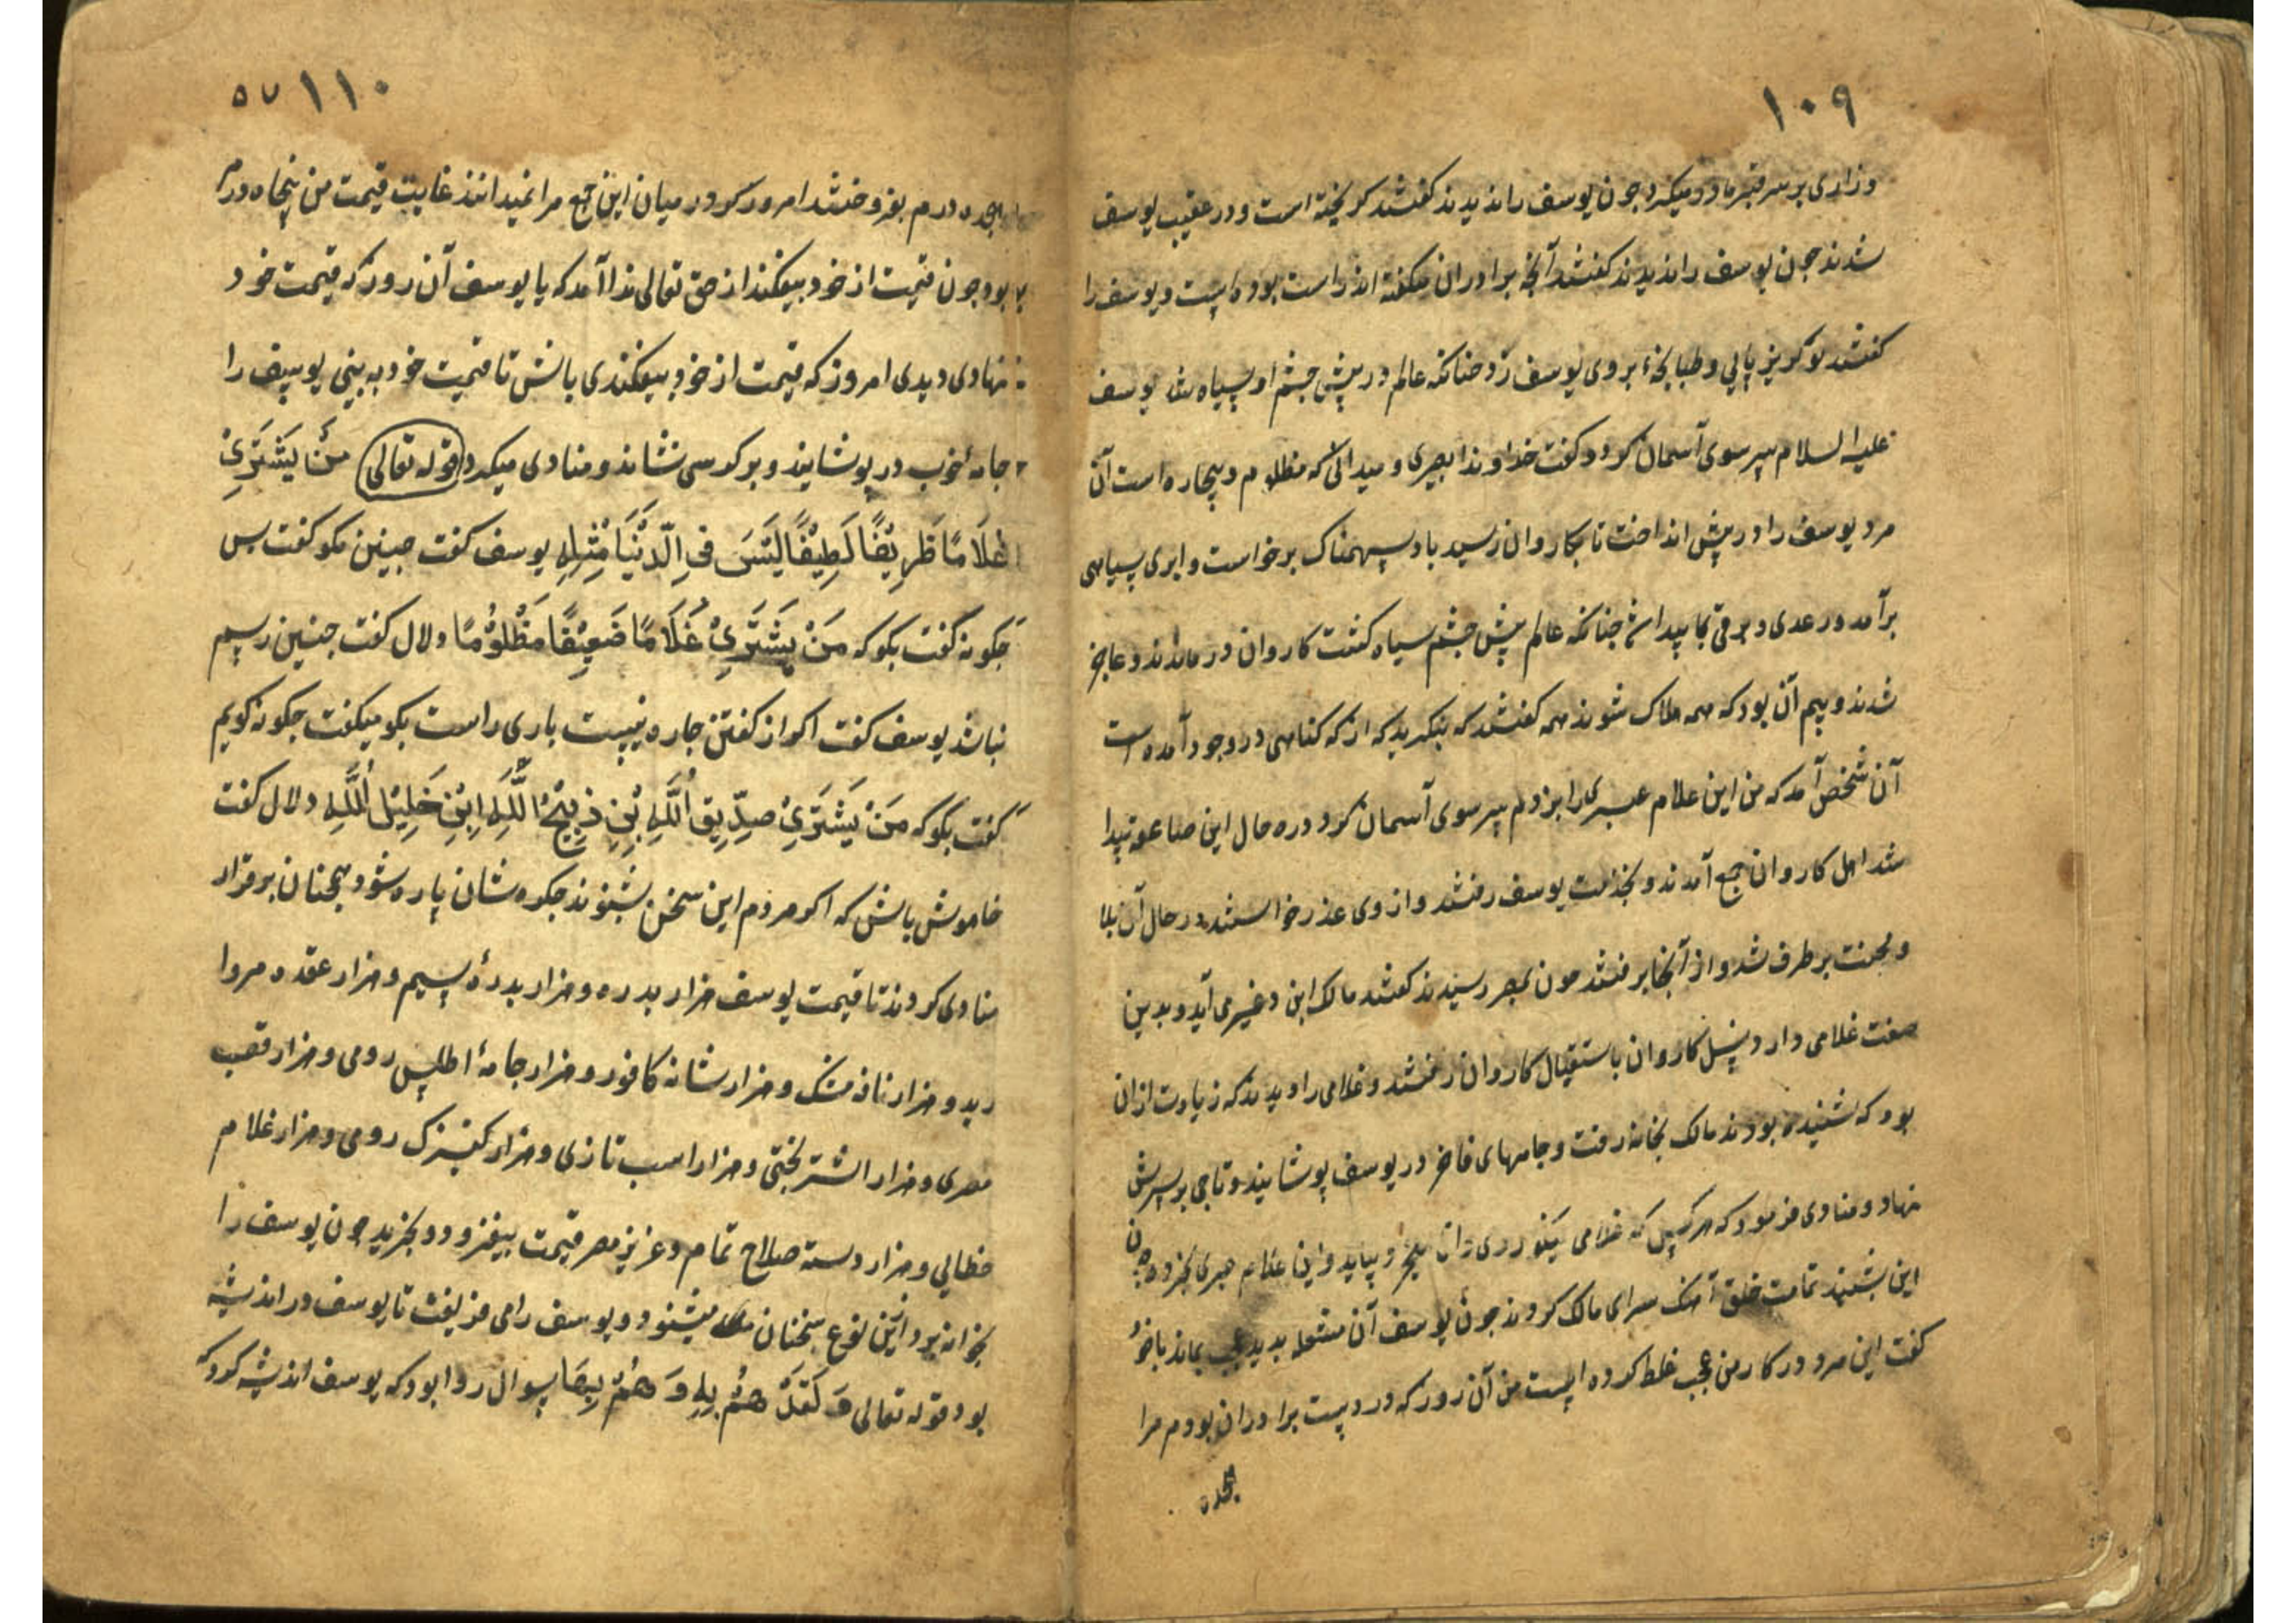 ۱۰۹
وزاری بر سر قبر مادر میکرد چون یوسف را ندیدند کفتند کریخته است و در عقب یوسف
شدند چون یوسف را ندیدند کفتند آنچه برادران میکفته اند راست بوده است و یوسف را
کفتند تو کریز پایی و طبانچهٔ بروی یوسف زد چنانکه عالم در پیش چشم او سیاه شد یوسف
علیه السلام سر سوی آسمان کرد و کفت خداوندا بصیری و میدانی که مظلوم و بیچاره است آن
مرد یوسف را در پیش انداخت تا بکاروان رسید باد سهمناک برخواست و ابری سیاهی
برآمد و رعدی و برقی پیدا شد چنانکه عالم پیش چشم سیاه کشت کاروان در ماندند و عاجز
شدند و بیم آن بود که همه هلاک شوند همه کفتند که بنکرید که از که کناهی در وجود آمده است
آن شخص آمد که من این غلام عبری را بزدم سر سوی آسمان کرد و در حال این صاعقه پیدا
شد اهل کاروان جمع آمدند و بخدمت یوسف رفتند و از وی عذر خواستند در حال آن بلا
و محنت بر طرف شد و از آنجا برفتند چون بمصر رسیدند کفتند مالک ابن دغیر می آید و بدین
صفت غلامی دارد پس کاروان باستقبال کاروان رفتند و غلامی را دیدند که زیادت از آن
بود که شنیده بودند مالک بخانه رفت و جامهای فاخر در یوسف پوشانید و تاجی بر سرش
نهاد و منادی فرمود که هر کس که غلامی نیکو روی بیاید و این غلام عبری بخرد چون
این بشنیدند تمامت خلق آهنک سرای مالک کردند چون یوسف آن مشعله بدید عجب بماند با خود
کفت این مرد در کار من عجب غلط کرده است من آن روز که در دست برادران بودم مرا
بهجده
۱۱۰ ۵۷
بهجده درم بفروختند امروز که در میان این جمع مرا نمیدانند غایت قیمت من پنجاه درم
بود چون قیمت از خود بیفکند از حق تعالی ندا آمد که یا یوسف آن روز که قیمت خود
نهادی دیدی امروز که قیمت از خود بیفکندی باش تا قیمت خود به بینی یوسف را
جامهٔ خوب در پوشانید و بر کرسی نشاند و منادی میکرد قوله تعالی مَنْ یَشْتَرِیْ
غُلَامًا ظَرِیْفًا لَطِیْفًا لَیْسَ فِی الدُّنْیَا مِثْلِهِ یوسف کفت چنین مکو کفت پس
چکونه کفت بکو که مَنْ یَشْتَرِیْ غُلَامًا ضَعِیْفًا مَظْلُوْمًا دلال کفت چنین رسم
نباشد یوسف کفت اکر از کفتن چاره نیست باری راست بکو میکفت چکونه کویم
کفت بکو که مَنْ یَشْتَرِیْ صِدِّیْقِ اللَّهِ بْنِ ذَبِیْحُ اللَّهِ اِبْنِ خَلِیْلِ اللَّهِ دلال کفت
خاموش باش که اکر مردم این سخن بشنوند جکره شان پاره شود همچنان بر قرار
منادی کردند تا قیمت یوسف هزار بدره و هزار بدرهٔ سیم و هزار عقده مروا
رید و هزار نافه مشک و هزار شانه کافور و هزار جامهٔ اطلس رومی و هزار قصب
مصری و هزار اشتر بختی و هزار اسب تازی و هزار کنیزک رومی و هزار غلام
خطایی و هزار دسته صلاح تمام و عزیز مصر قیمت بیفزود و بخرید چون یوسف را
بخرانه برد ازین نوع سخنان میشنود و یوسف را می فریفت تا یوسف در اندیشه
بود قوله تعالی وَ لَقَدْ هَمَّتْ بِهِ وَ هَمَّ بِهَا سوال روا بود که یوسف اندیشه کرد که